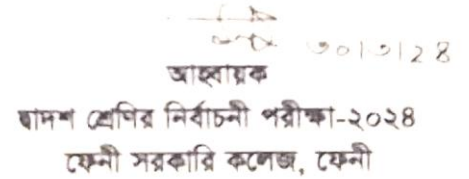 ৩০|১|২৪
আহবায়ক
দ্বাদশ শ্রেণির নির্বাচনী পরীক্ষা-২০২৪
ফেনী সরকারি কলেজ, ফেনী